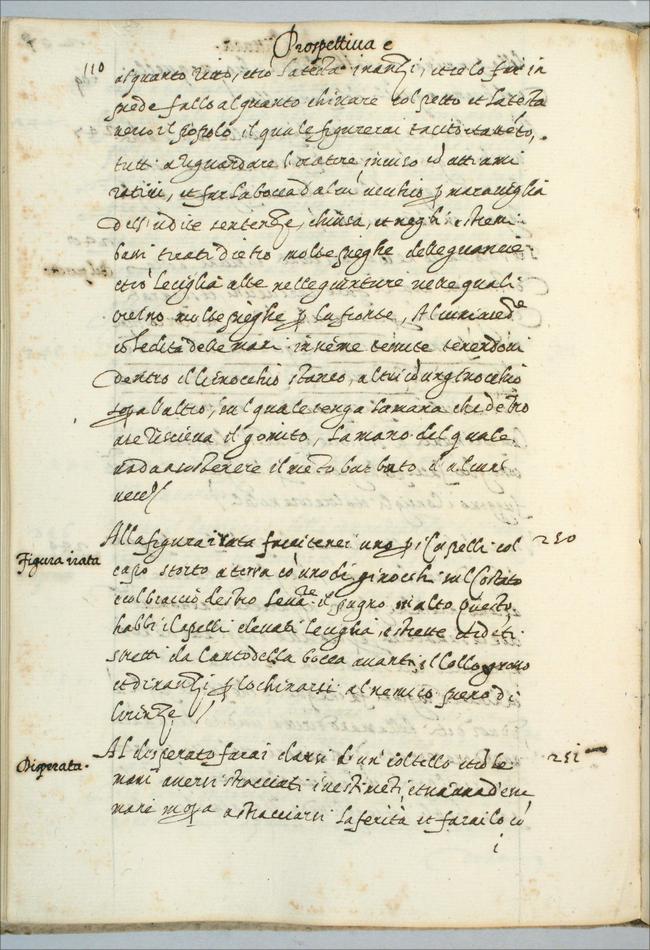 Prospettiua e
110
alquanto uolto, et cō la testa inanzi, et se lo fai in
piede fallo alquanto chinare col petto et la testa
uerso il popolo il quale figurerai tacito et attēto,
tutti a riguardare l'oratore in uiso cō atti ami
ratiui, et far la bocca d'alcū uecchio ꝑ marauiglia
dell'udite sentenze, chiusa, et negli estremi
bassi tirarsi dietro molte pieghe delle guancie
et cō le ciglia alte nelle giunture ne le quali
creino molte pieghe ꝑ la fronte, Alcuni sied.re
cō le dita delle mani insieme tenute tenendoui
dentro il ginocchio stanco, altri cō un ginocchio
sopra l'altro, sul quale tenga la mana che dētro
a se riceua il gomito, la mano del quale
uada a sostenere il mēto barbuto d'alcun
uecc.
Figura irata
Alla figura irata farai tenere uno ꝑ i capelli col
250
capo storto a terra cō uno de ginocchi sul costato
et col braccio destro leuare il pugno in alto, questo
habbi i capelli eleuati le ciglia, e strette et i dēti
stretti da canto della bocca auanti il collo grosso
et dinanzi ꝑ lo chinarsi al nemico pieno di
Grinze
Disperata.
Al disperato farai darsi d'un coltello et cō le
251
mani auersi stracciati i uestimēti, et una d'esse
mane
a stracciarsi la ferita et farailo cō
i